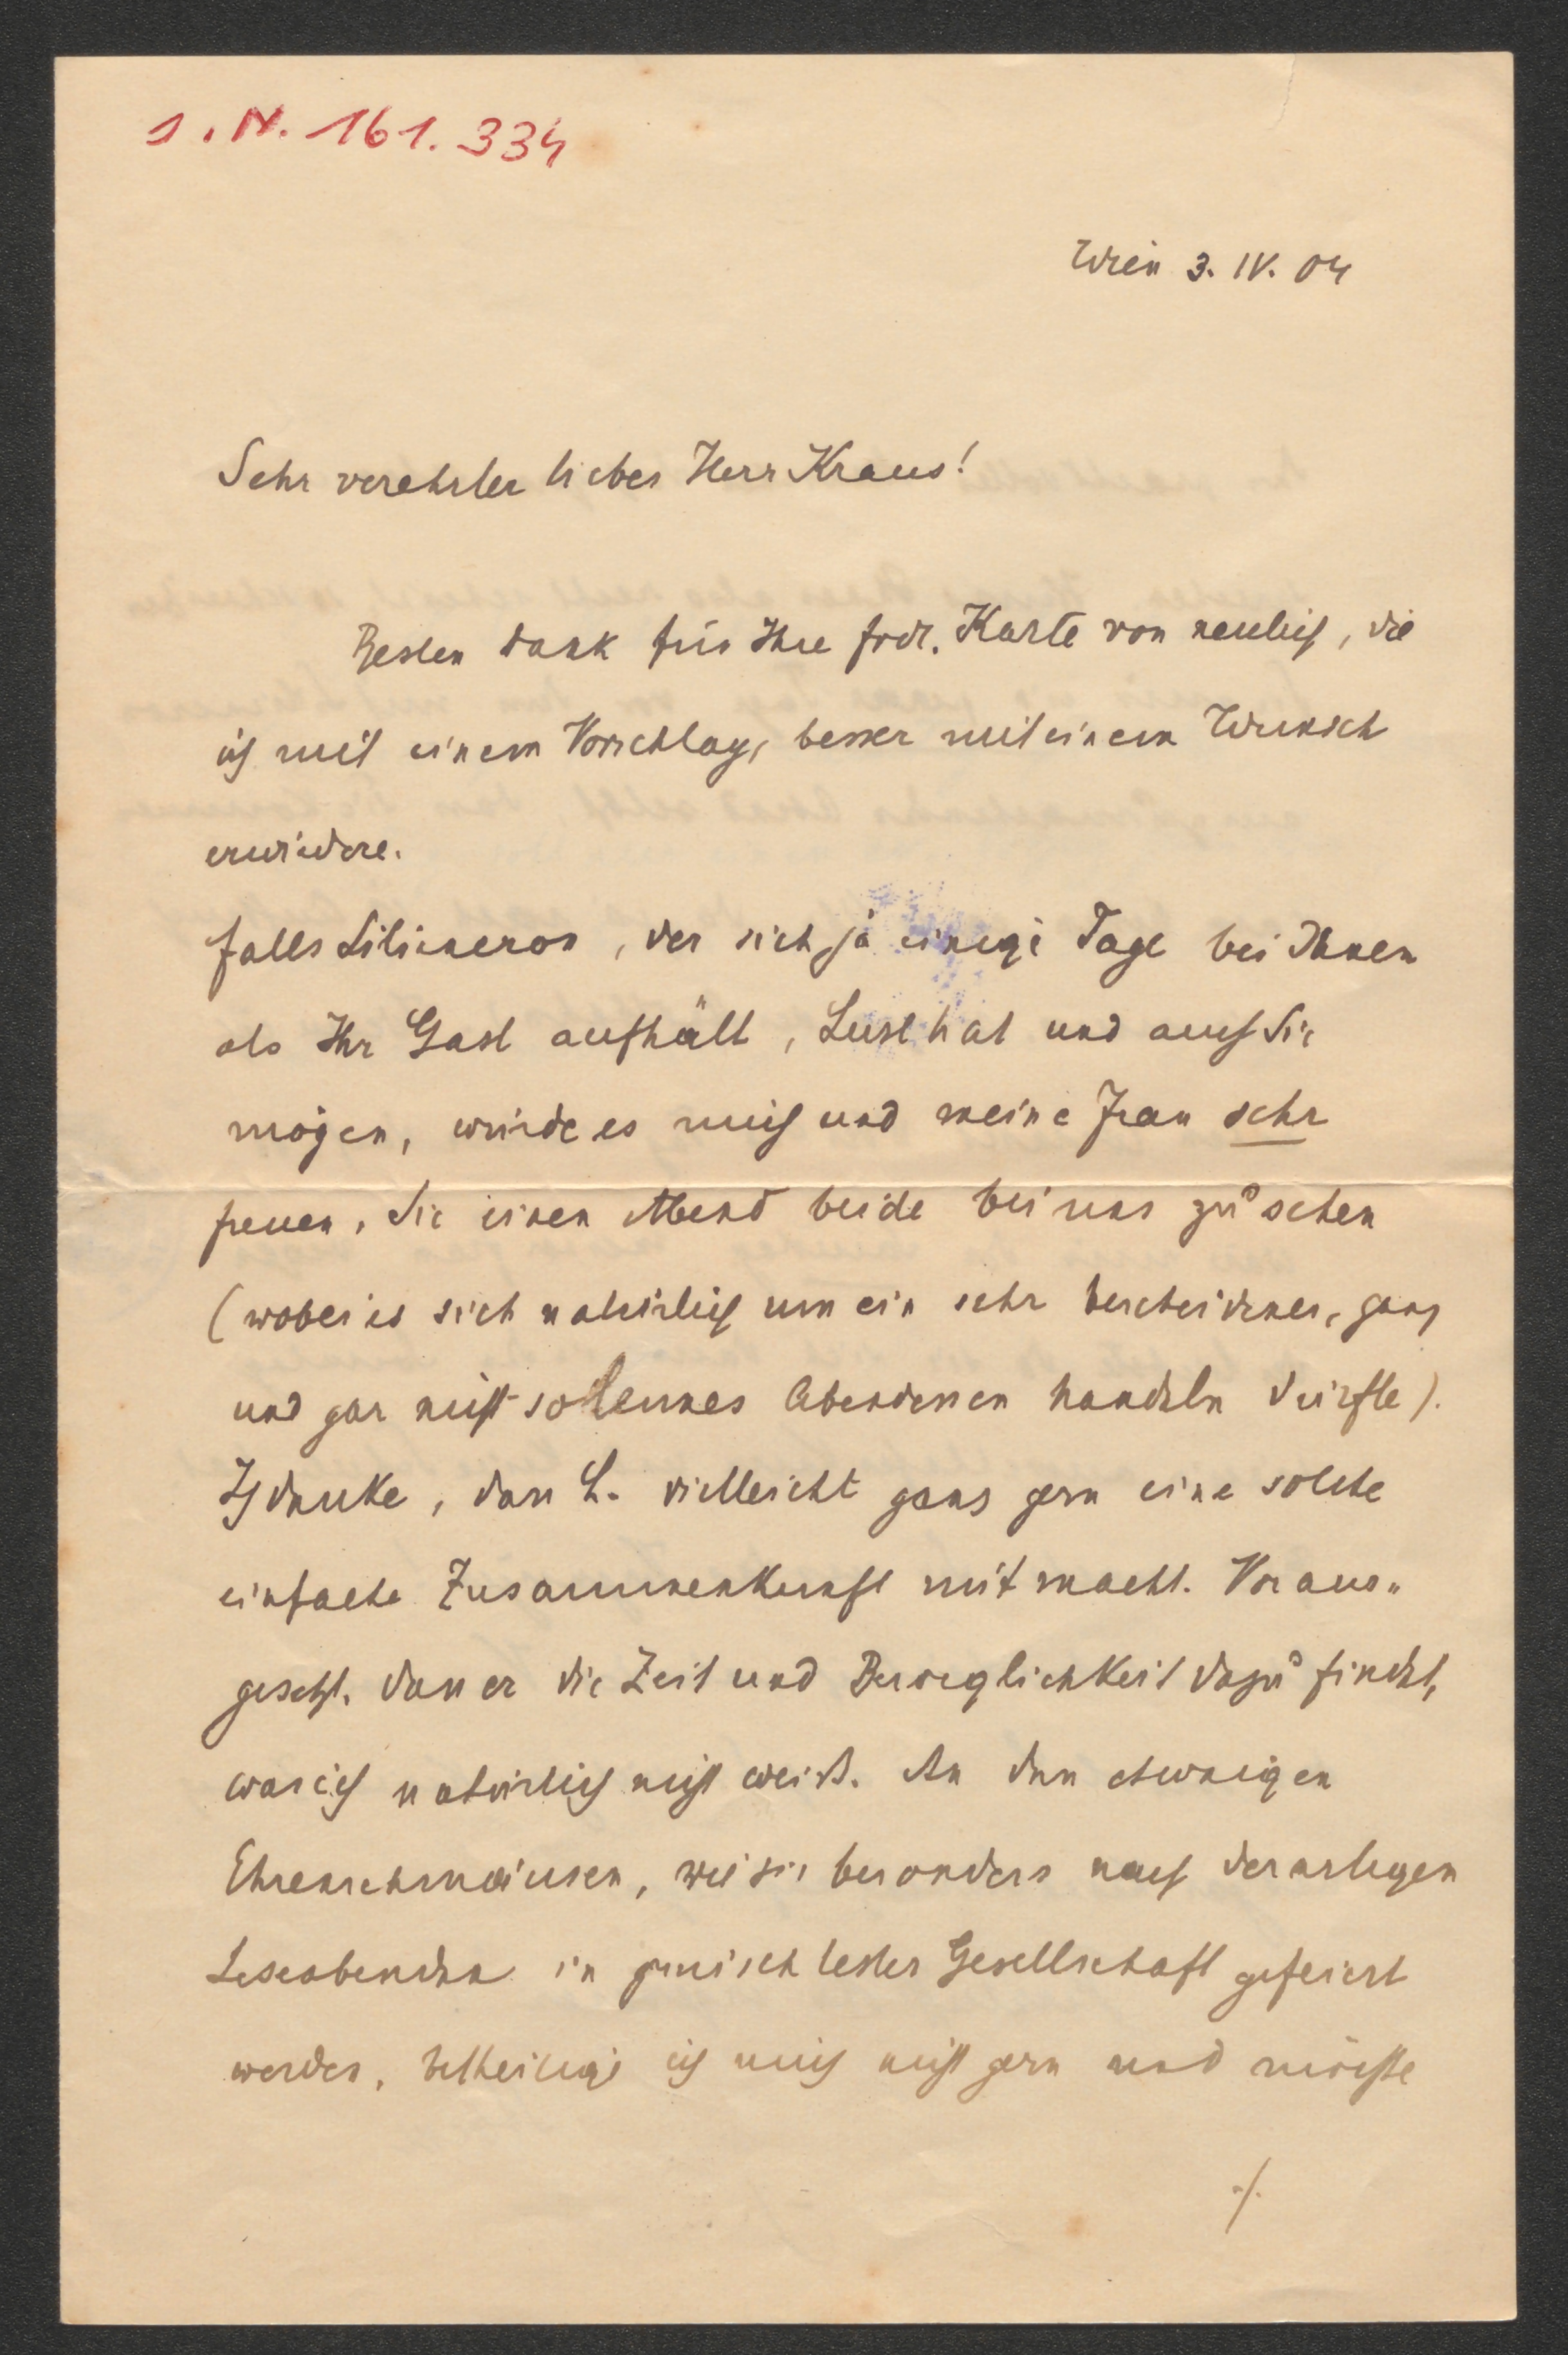 I. N. 161.334
Wien 3. IV. 04
Sehr verehrter lieber Herr Kraus!
Besten Dank für Ihre frdl. Karte von neulich, die
ich mit einem Vorschlag, besser mit einem Wunsch
erwidere.
Falls Liliencron, der sich ja einige Tage bei Ihnen
als Ihr Gast aufhält, Lust hat und auch Sie
mögen, würde es mich und meine Frau sehr
freuen, Sie einen Abend beide bei uns zu sehen
(wobei es sich natürlich um ein sehr bescheidenes, ganz
und gar nicht solennes Abendessen handeln dürfte).
Ich denke, dass L. vielleicht ganz gern eine solche
einfache Zusammenkunft mitmacht. Voraus-
gesetzt, dass er die Zeit und Beweglichkeit dazu findet,
was ich natürlich nicht weiß. An den etwaigen
Ehrenschmäusen, wie sie besonders nach derartigen
Leseabenden in gemischtester Gesellschaft gefeiert
werden, betheilige ich mich nicht gern und möchte
./.